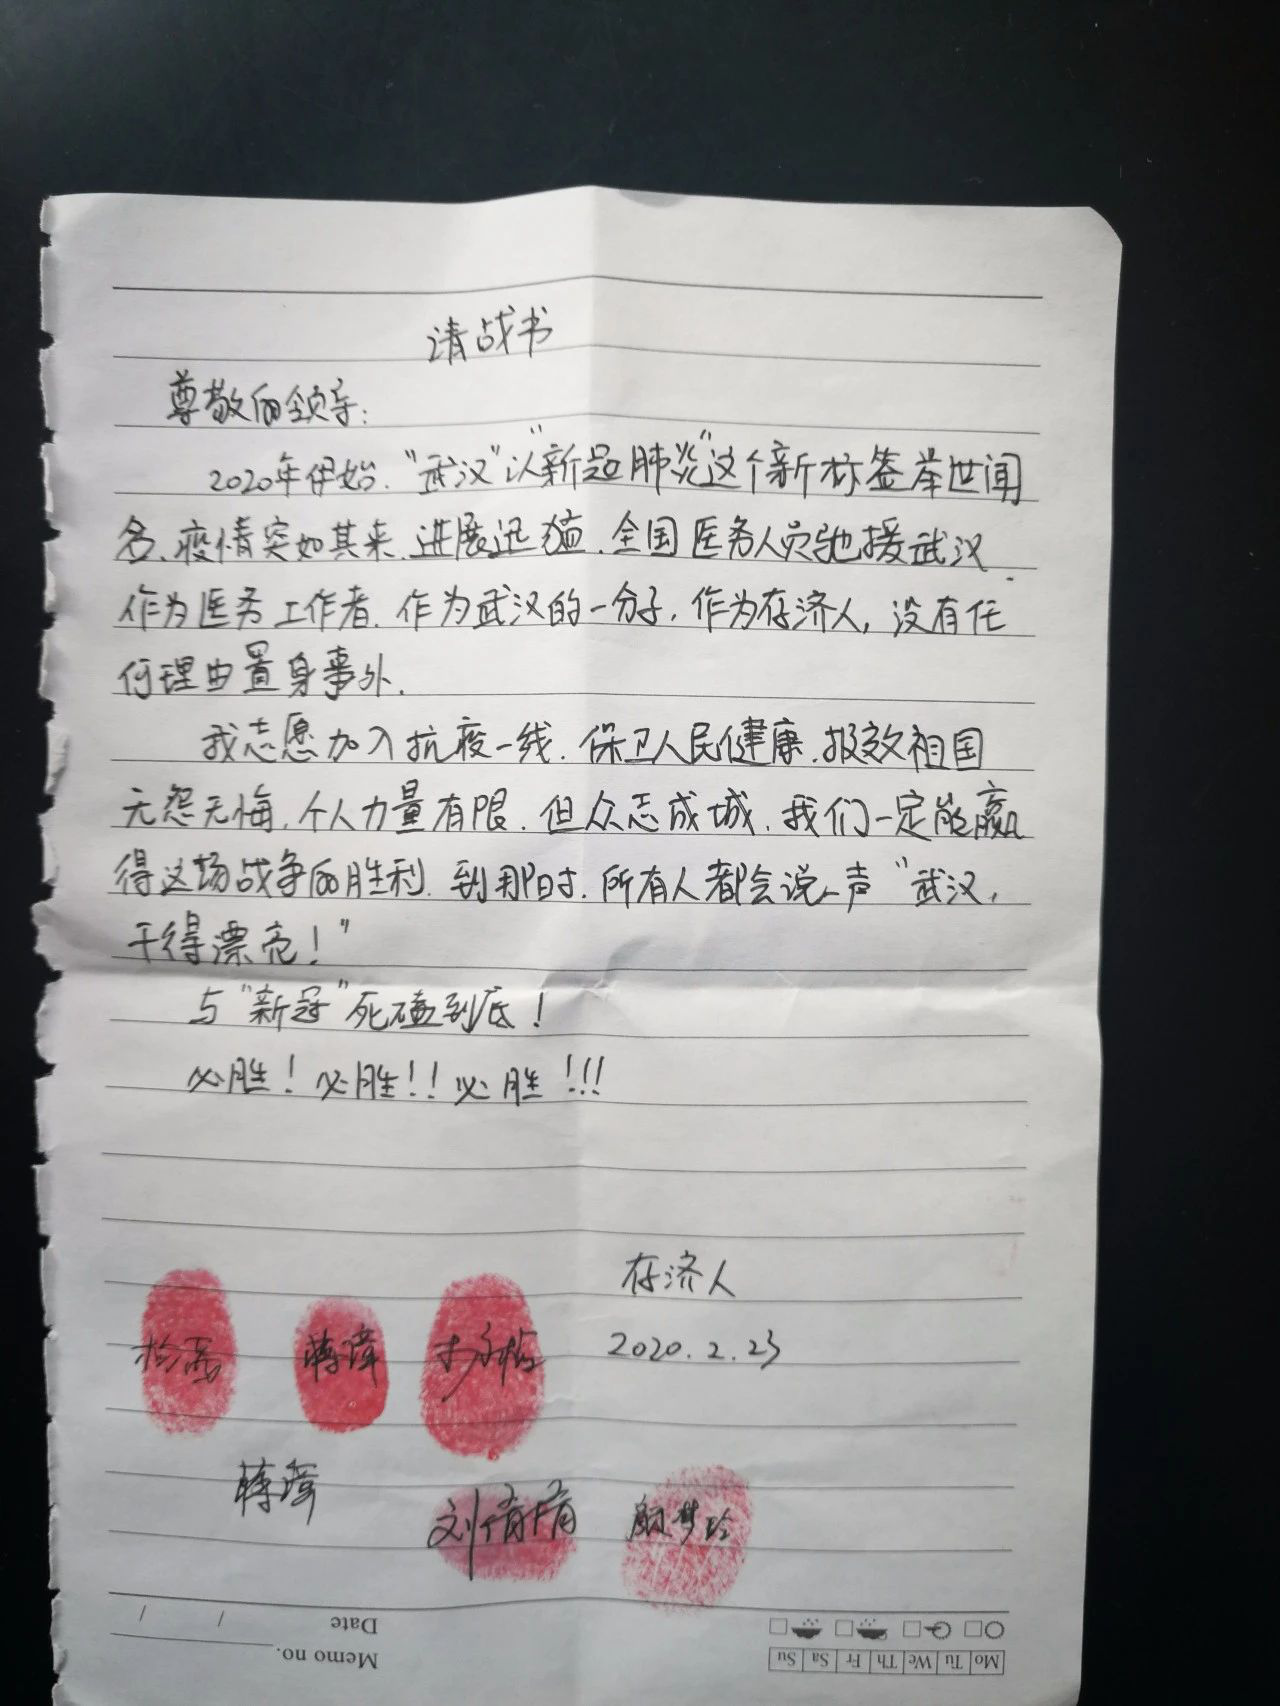 请战书
尊敬的领导：
2020年伊始，“武汉”以“新冠肺炎”这个新标签举世闻
名，疫情突如其来，进展迅猛，全国医务人员驰援武汉，
作为医务工作者，作为武汉的一分子，作为存济人，没有任
何理由置身事外，
我志愿加入抗疫一线，保卫人民健康，报效祖国
无怨无悔，个人力量有限，但众志成城，我们一定能赢
得这场战争的胜利，到那时，所有人都会说一声“武汉，
干得漂亮！”
与“新冠”死磕到底！
必胜！必胜！！必胜！！！
存济人
2020.2.23
蒋
蒋
刘倩倩
梦玲
Date / /
Memo no.
Mo Tu We Th Fr Sa Su